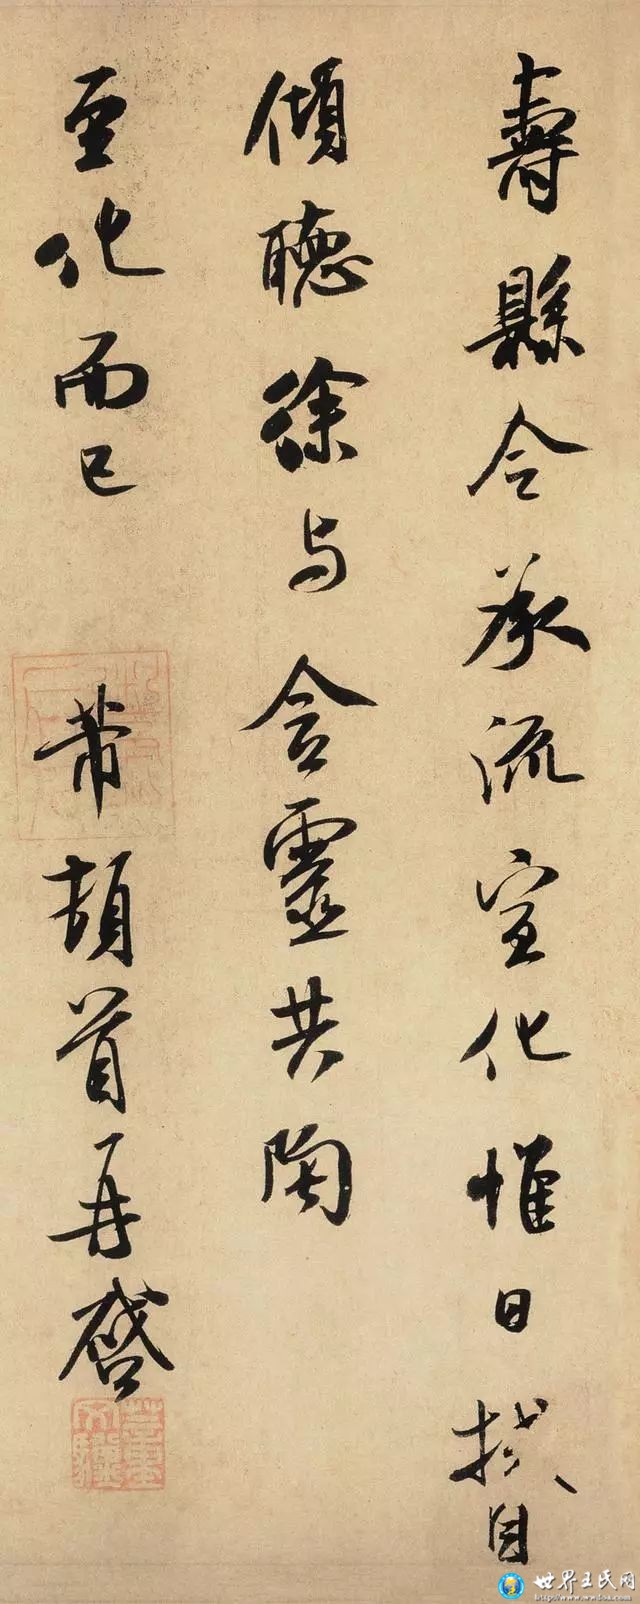 壽縣令承流宣化惟日拭目
傾聽徐与含靈共陶
至化而已 芾頓首再啓
世界王氏网